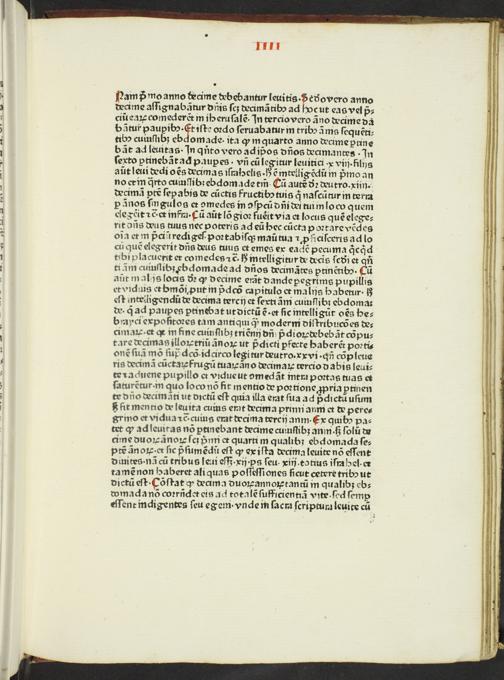 IIII
Nam p̄mo anno decime debebantur levitis. Sc̄do vero anno
decime assignabātur dn̄is seꝫ decimātibꝰ ad hoc ut eas vel p̄
ciū earꝝ comederēt in iherusalē. In tercio vero āno decime dā
bātur paupibꝰ. Et iste ordo seruabatur in tribꝰ ānis sequēti
tibꝰ cuiuslibꝫ ebdomade. ita ꝙ in quarto anno decime ptine
bāt ad levitas. In qn̄to vero ad ip̄os dn̄os decimantes. In
sexto ptinebāt ad paupes. vn̄ cū legitur levitici. xviij. filijs
aūt levi dedi oēs decimas israhelis. hͦ ē intelligēdū in p̄mo an
no et in qrto cuiuslibꝫ ebdomade tm̄. Cū autē dr̄ deutro. xiiij.
decimā ptē sepabis de cūctis fructibꝰ tuis q̄ nascūtur in terra
p ānos singulos et comedes in ɔspcū dn̄i dei tui in loco quem
elegēit ⁊c̄ et infra. Cū aūt lōgior fuēit via et locus quē elege
rit dn̄s deus tuus nec poteris ad eū hec cūcta portare vēdes
oīa et in p̄ciū rediges portabisqꝫ manu tua ⁊ ꝓficisceris ad lo
cū quē elegerit dn̄s deus tuus et emes ex eadē pecunia qc̄qd
tibi placuerit et comedes ⁊c̄. hͦ intelligitur de decīs scd̄i et qn̄
ti āni cuiuslibꝫ ebdomade ad dn̄os decimātes ptinētibꝰ. Cū
aūt in alijs locis dr̄ ꝙ decime erāt dande pegrinis pupillis
et viduis et hmōi, put in p̄dcō capitulo et in alijs habetur. hͦ
est intelligēdū de decima tercij et sexti āni cuiuslibꝫ ebdomai
de. q̄ ad paupes ptinebat ut dictū ē. et sic intelligūt oēs he-
brayci expositores tam antiqui ꝙ moderni distribucōes de-
cimarꝝ. et qꝛ in fine cuiuslibꝫ trienij dn̄i p̄dior debebāt cōpu-
tare decimas illorꝝ triū ānorꝝ ut p̄dicti pfecte haberēt porti-
onē suā mō sup̄ dcō. idcirco legitur deutro. xxvi. qn̄ cōpleue
ris decimā cūctarꝝ frugū tuarꝝ āno decimarꝝ tercio dabis leui
te ⁊ aduene pupillo et vidue ut comedāt intra portas tuas et
saturētur. in quo loco nō fit mentio de portione ꝓpria ptinen
te dn̄o decimāti ut dictū est quia illa erat sua ad p̄dictū usum
hͦ fit mentio de levita cuius erat decima primi anni et de pere-
grino et vidua ⁊c̄ cuius erat decima tercij anni. Ex quibꝰ pa-
tet ꝙ ad levitas nō ptinebant decime cuiuslibꝫ anni. hͦ solū de
cime duorꝝ ānorꝝ seꝫ p̄mi et quarti in qualibꝫ ebdomada se-
ptē ānorꝝ. et sic p̄sumēdū est ꝙ ex ista decima levite nō essent
diuites. nā cū tribus leui esset. xij. ps seu. xiij. totius israhel. et
tamē non haberet aliquas possessiones sicut cetere tribꝰ ut
dictū est. Cōstat ꝙ decima duorꝝ annorꝝ tantū in qualibꝫ eb-
domada nō cōrn̄det eis ad totalē sufficientiā vite. sed semp
essent indigentes seu egeni. vnde in sacra scriptura levite cū